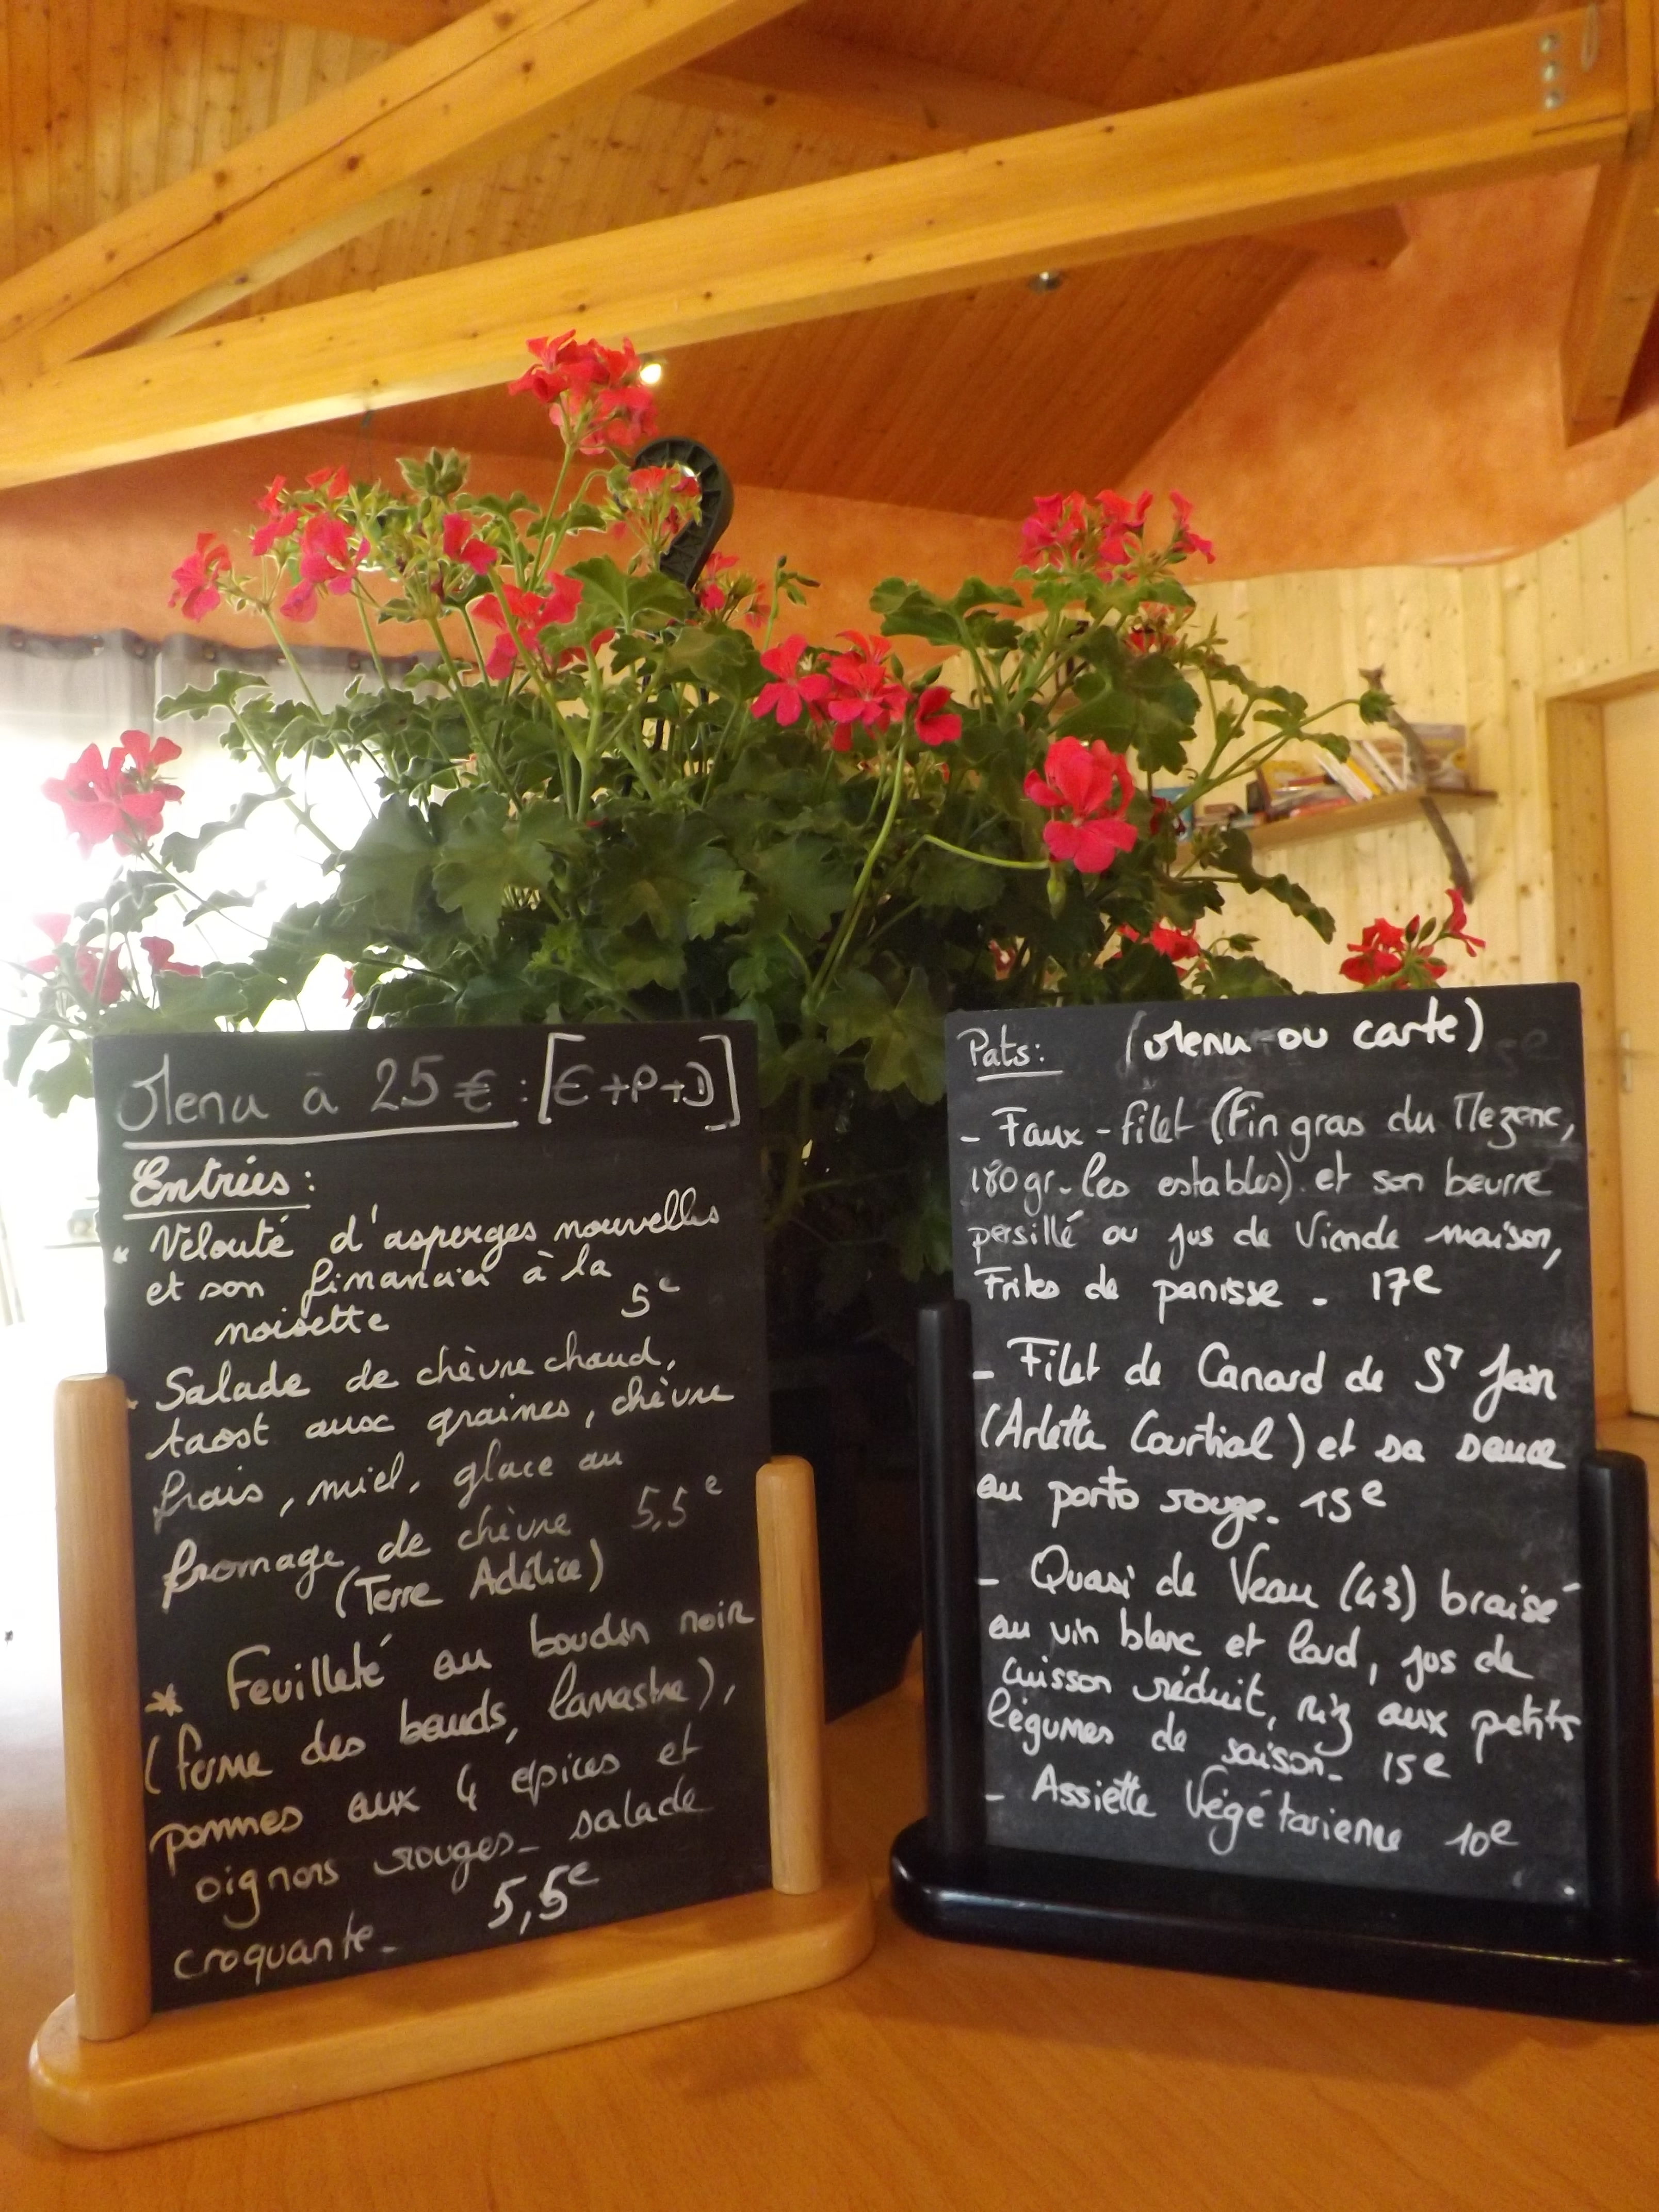 Menu à 25 € : [E+P+D]
Entrées :
* Velouté d'asperges nouvelles
et son financier à la
noisette 5e
Salade de chèvre chaud,
taost aux graines, chèvre
frais, miel, glace au
fromage de chèvre 5,5e
(Terre Adélice)
* Feuilleté au boudin noir
(ferme des bauds, lamastre),
pommes aux 4 épices et
oignons rouges_ salade
croquante_ 5,5e
Pats: (Menu ou carte)
- Faux-filet (Fin gras du Mezenc,
180gr_les estables) et son beurre
persillé ou jus de Viande maison,
Frites de panisse_ 17e
- Filet de Canard de ST Jean
(Arlette Courtial) et sa sauce
au porto rouge_ 15e
- Quasi de Veau (43) braisé
au vin blanc et lard, jus de
cuisson réduit, riz aux petits
légumes de saison_ 15e
- Assiette Végétarienne 10e